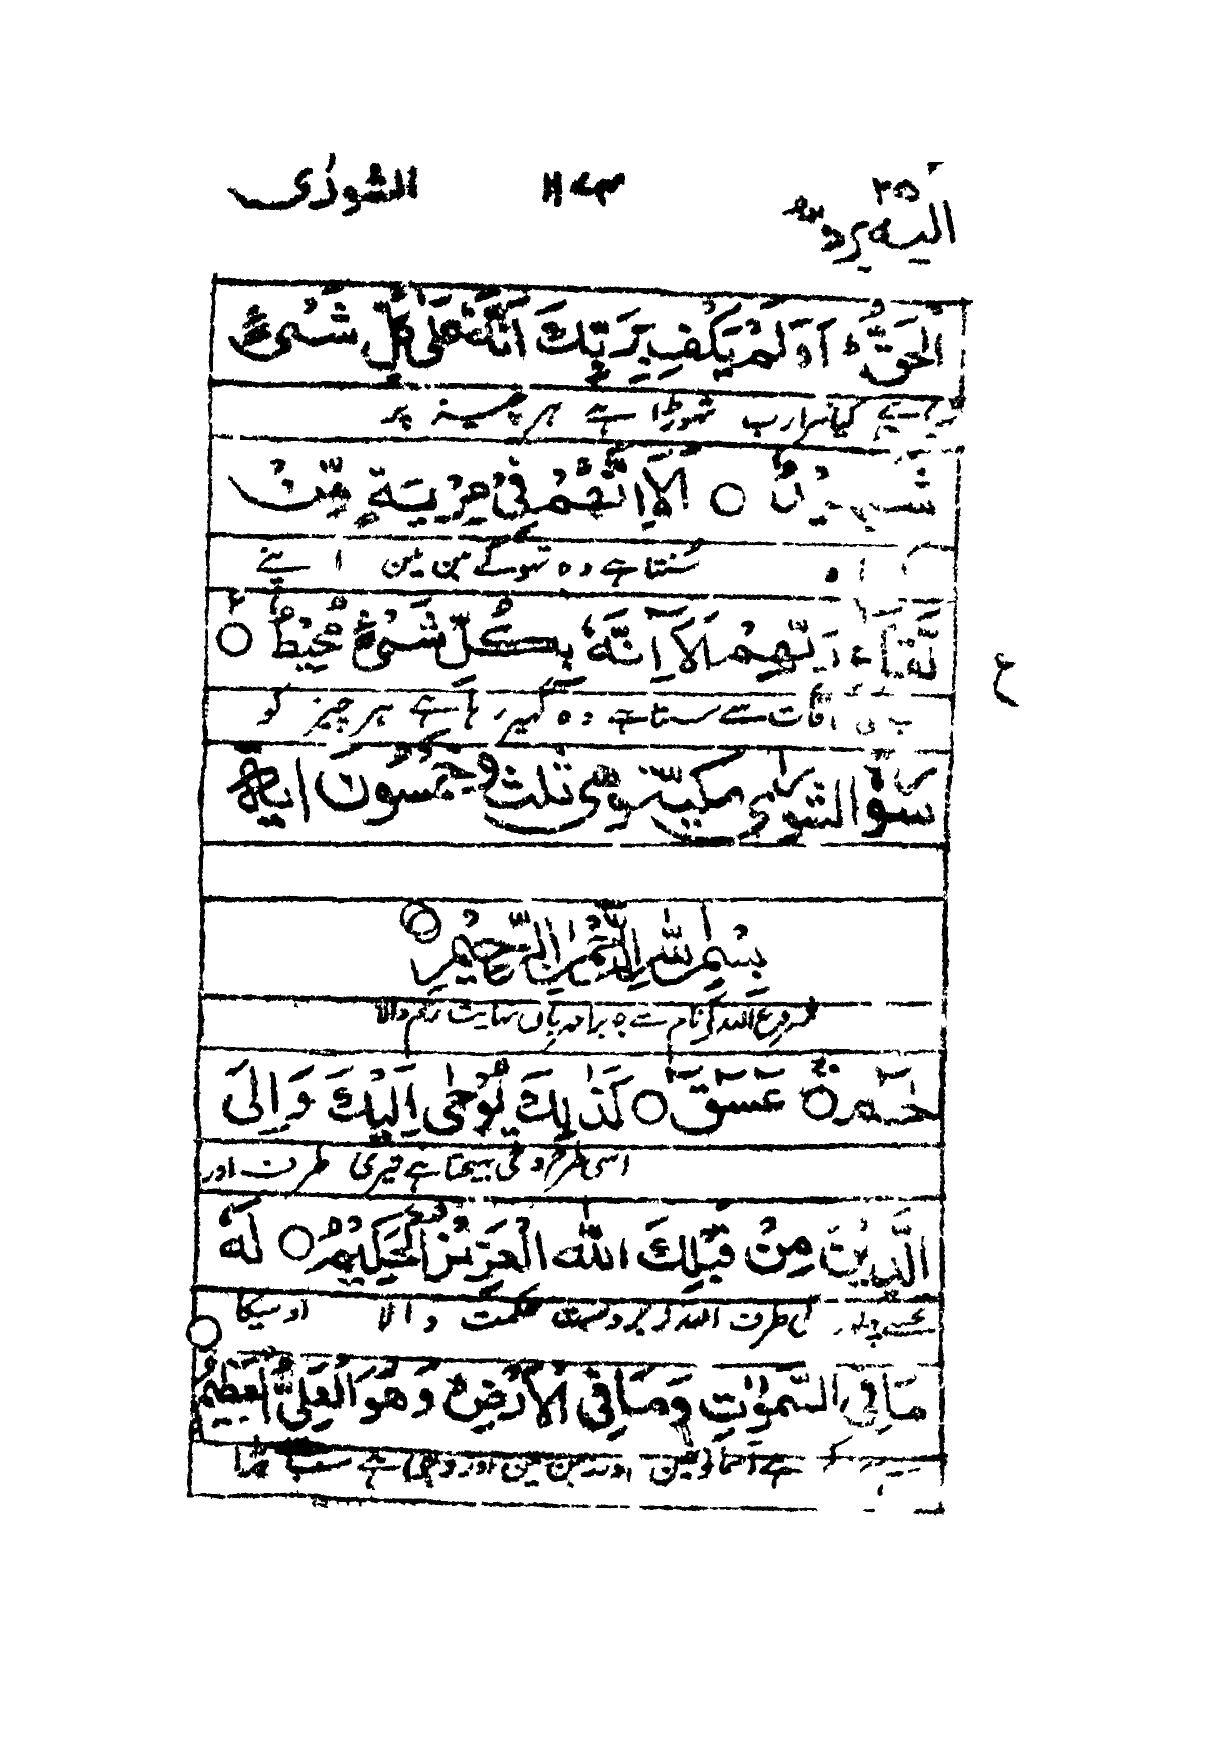 الشورٰى ۱۱۷۳ اليه يرد ۲۵
الْحَقُّ ؕ اَوَلَمْ يَكْفِ بِرَبِّكَ اَنَّهٗ عَلٰى كُلِّ شَىْءٍ
ہے کیا تیرا رب تھوڑا ہے ہر چیز پر
شَهِيْدٌ ○ اَلَاۤ اِنَّهُمْ فِىْ مِرْيَةٍ مِّنْ
سنتا ہے وہ دھوکے میں ہیں اپنے
لِّقَآءِ رَبِّهِمْ ؕ اَلَاۤ اِنَّهٗ بِكُلِّ شَىْءٍ مُّحِيْطٌ ○
ع
کی ملاقات سے سنتا ہے وہ گھیر رہا ہے ہر چیز کو
سورة الشورٰى مكية وهى ثلث وخمسون اية
بِسْمِ اللّٰهِ الرَّحْمٰنِ الرَّحِيْمِ ○
شروع اللہ کے نام سے جو بڑا مہربان نہایت رحم والا
حٰمٓ ○ عٓسٓقٓ ○ كَذٰلِكَ يُوْحِىْۤ اِلَيْكَ وَاِلَى
اسی طرح وحی بھیجتا ہے تیری طرف اور
الَّذِيْنَ مِنْ قَبْلِكَ اللّٰهُ الْعَزِيْزُ الْحَكِيْمُ ○ لَهٗ
تجھ سے پہلوں کی طرف اللہ زبردست حکمت والا اوسیکا
مَا فِى السَّمٰوٰتِ وَمَا فِى الْاَرْضِ ؕ وَهُوَ الْعَلِىُّ الْعَظِيْمُ ○
ہے آسمانوں میں اور زمین میں اور وہی ہے سب بڑا